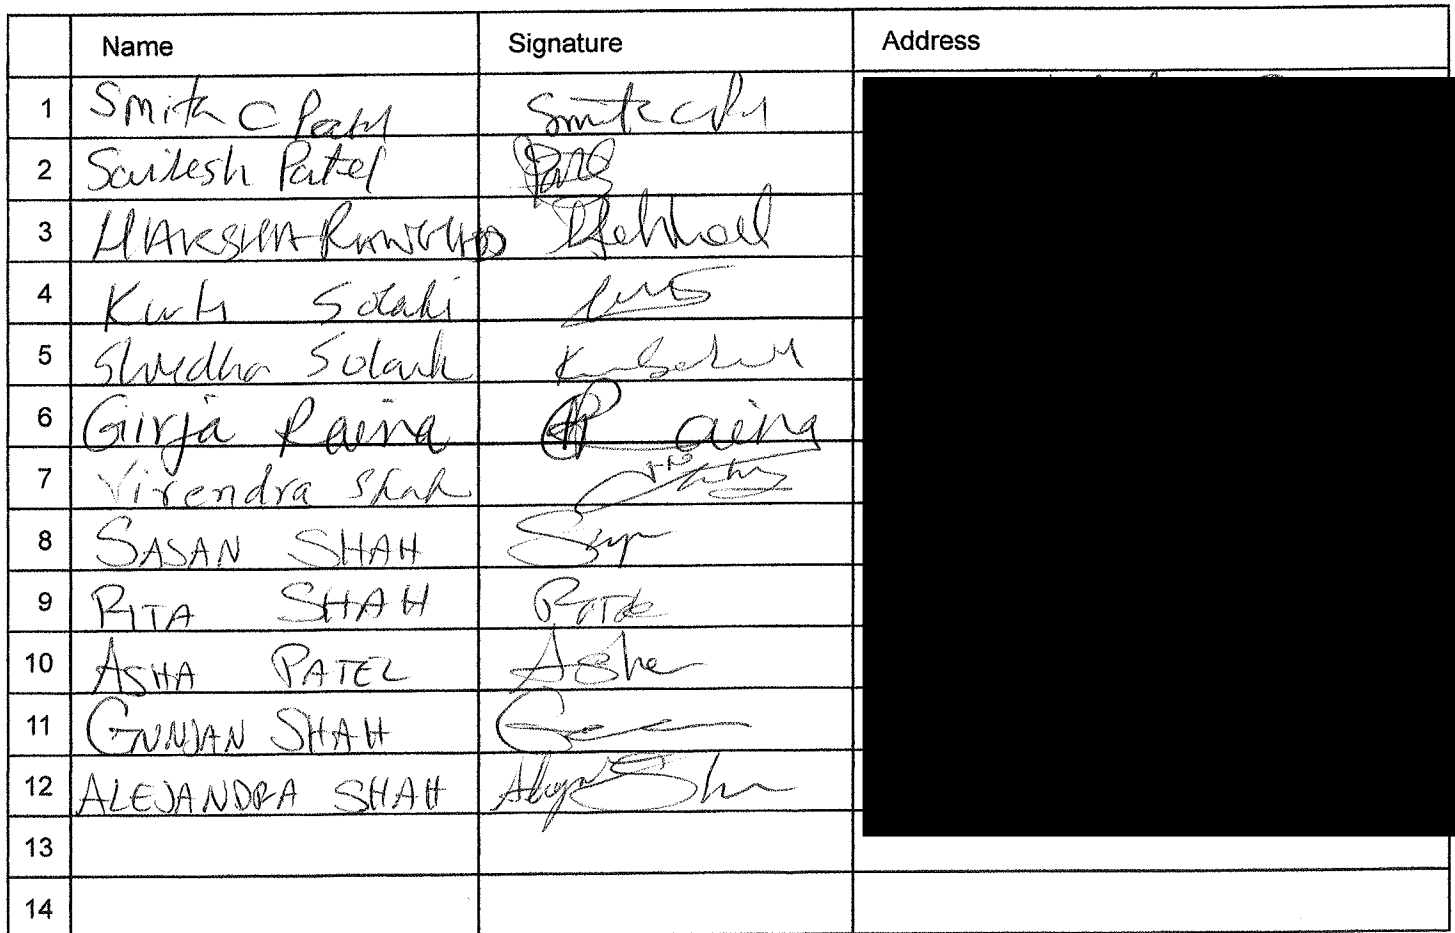 Name Signature Address
1 Smita C Patel Smita C Patel
2 Sailesh Patel Patel
3 HARSHA
4 Solaki
5 Shredha Solank
6 Girja Raina Raina
7 Virendra Shah
8 SASAN SHAH
9 RITA SHAH Rita
10 ASHA PATEL Asha
11 GUNJAN SHAH
12 ALEJANDRA SHAH
13
14